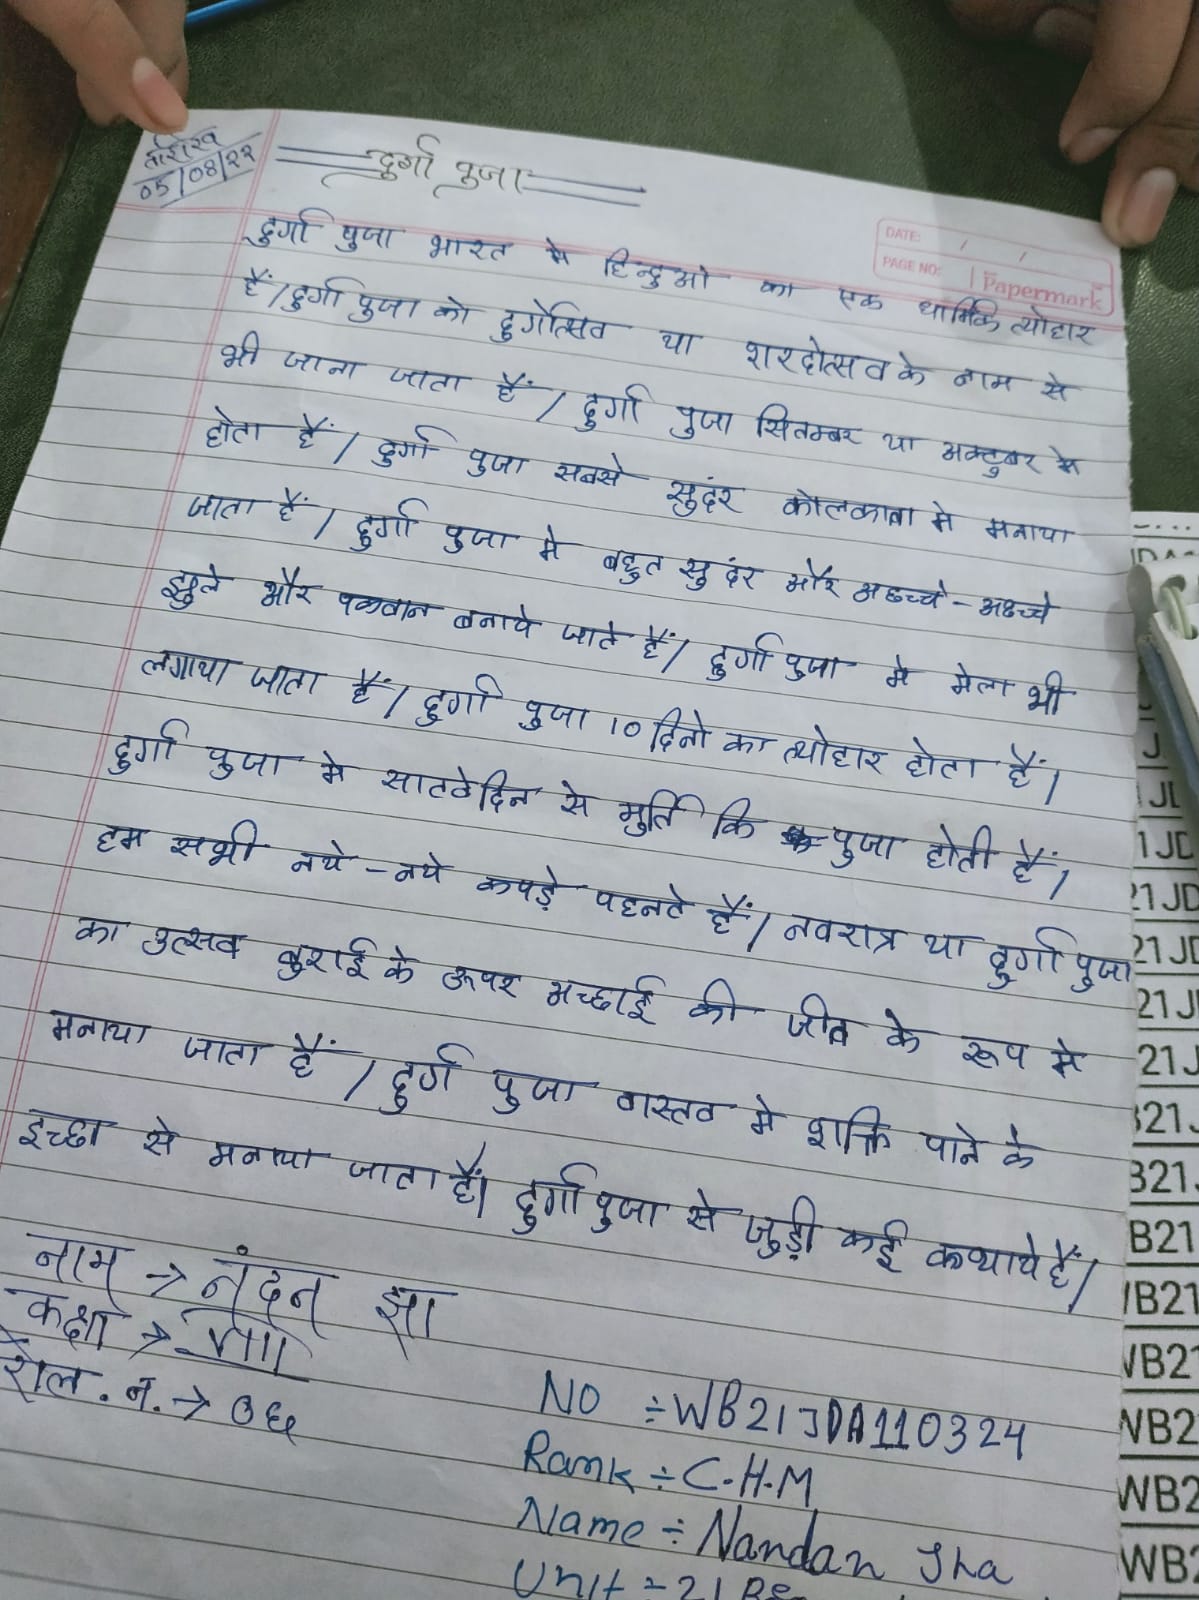 तारीख
05/08/22
दुर्गा पुजा
DATE: / /
PAGE NO:
Papermark
दुर्गा पुजा भारत मे हिन्दुओ का एक धार्मिक त्योहार
हैं/दुर्गा पुजा को दुर्गोत्सव या शरदोत्सव के नाम से
भी जाना जाता हैं / दुर्गा पुजा सितम्बर या अक्टुबर मे
होता हैं / दुर्गा पुजा सबसे सुदंर कोलकाता मे मनाया
जाता हैं / दुर्गा पुजा मे बहुत सुदंर और अछच्चे - अछच्चे
झुले और पकवान बनाये जाते हैं/ दुर्गा पुजा मे मेला भी
लगाया जाता हैं/ दुर्गा पुजा 10 दिनो का त्योहार होता हैं/
दुर्गा पुजा मे सातवेदिन से मुर्ति कि पुजा होती हैं/
हम सभी नये - नये कपड़े पहनते हैं/ नवरात्र या दुर्गा पुजा
का उत्सव बुराई के ऊपर अच्छाई की जीत के रूप मे
मनाया जाता हैं / दुर्गा पुजा वास्तव मे शक्ति पाने के
इच्छा से मनाया जाता हैं/ दुर्गा पुजा से जुड़ी कई कथाये हैं/
नाम → नंदन झा
कक्षा → VIII
रोल . न. → ०६
NO ÷ WB21JDA110324
Rank ÷ C.H.M
Name ÷ Nandan Jha
Unit ÷ 21